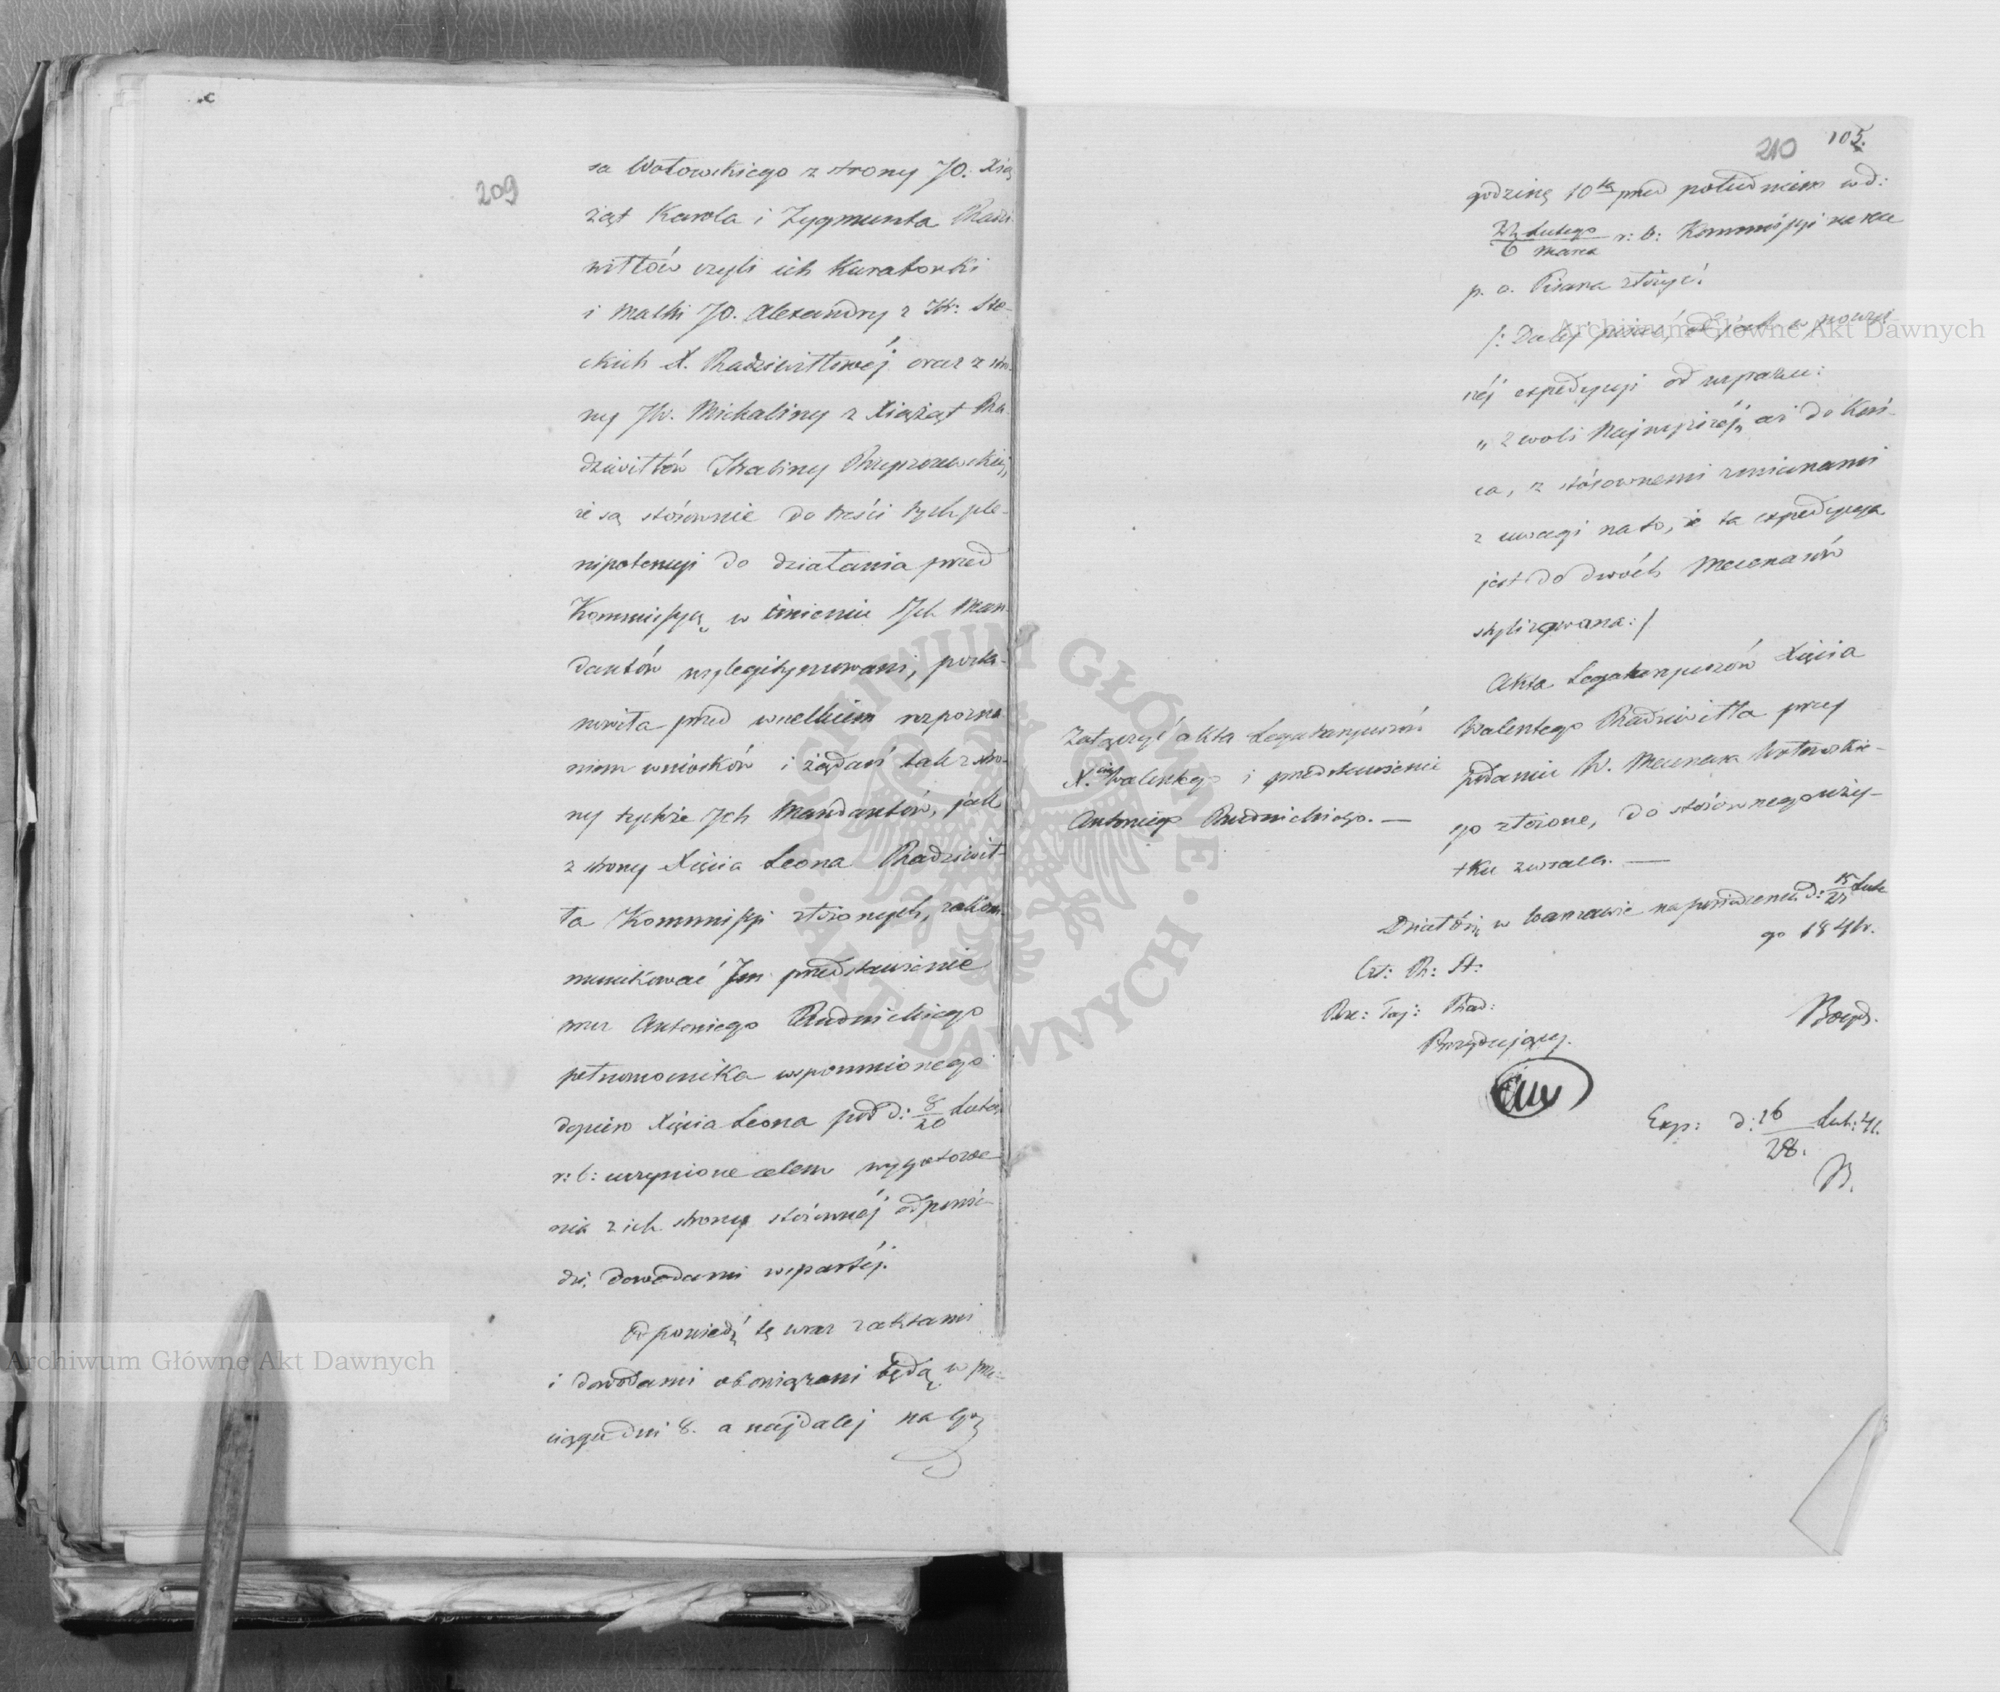 209
sa Wołowskiego z strony JO. Xią
żąt Karola i Zygmunta Radzi
wiłłów czyli ich Kuratorki
i Matki JO. Alexandry z Hr: Ste-
ckich X. Radziwiłłowéj oraz z stro
ny JW. Michaliny z Xiążąt Ra-
dziwiłłów Hrabiny Rzyszczewskiej,
że są stósownie do treści tych ple-
nipotencyi do działania przed
Kommissyą w imieniu Ich Man-
dantów wylegitymowani, posta-
nowiła przed wszelkiem rozpozna
niem wniosków i żądań tak z stro-
ny tychże Ich Mandantów, jak
z strony Xięcia Leona Radziwił-
ła Kommissyi złożonych, zakom
munikować Im przedstawienie
przez Antoniego Rudnickiego
pełnomocnika wspomnionego
dopiero Xięcia Leona pod d: 8/20 Lutego
r: b: uczynione celem wygotowa
nia z ich strony stósownéj odpowie-
dzi, dowodami wspartéj.
Odpowiedź tę wraz z aktami
i dowodami obowiązani będą w prze-
ciągu dni 8. a najdalej na
210 105.
godzinę 10tą przed południem w d:
Lutego/6 Marca r: b: Kommissyi na ręce
p. o. Pisarza złożyć.
/: Daléj pisać, jak w powyż
széj expedycyi od wyrazu:
„z woli Najwyższéj" aż do Koń-
ca, z stósownemi zmianami
z uwagi na to, że ta expedycya
jest do dwóch Mecenasów
stylizowana :/
Akta Legataryuszów Xięcia
Walentego Radziwiłła przy
podaniu W. Mecenasa Wołowskie-
go złożone, do stósownego uży-
tku zwraca. —
Załączyć akta Legataryuszów
X.cia Walentego i przedstawienie
Antoniego Rudnickiego. —
Działo się w Warszawie na posiedzeniu d: 15/27 Lute
go 1841 r.
Czł: R: St:
Rze: Taj: Rad:
Prezydujący.
Exp: d: 16/28. Lut: 41.
B.
Archiwum Główne Akt Dawnych
Archiwum Główne Akt Dawnych
ARCHIWUM GŁÓWNE · AKT DAWNYCH ·